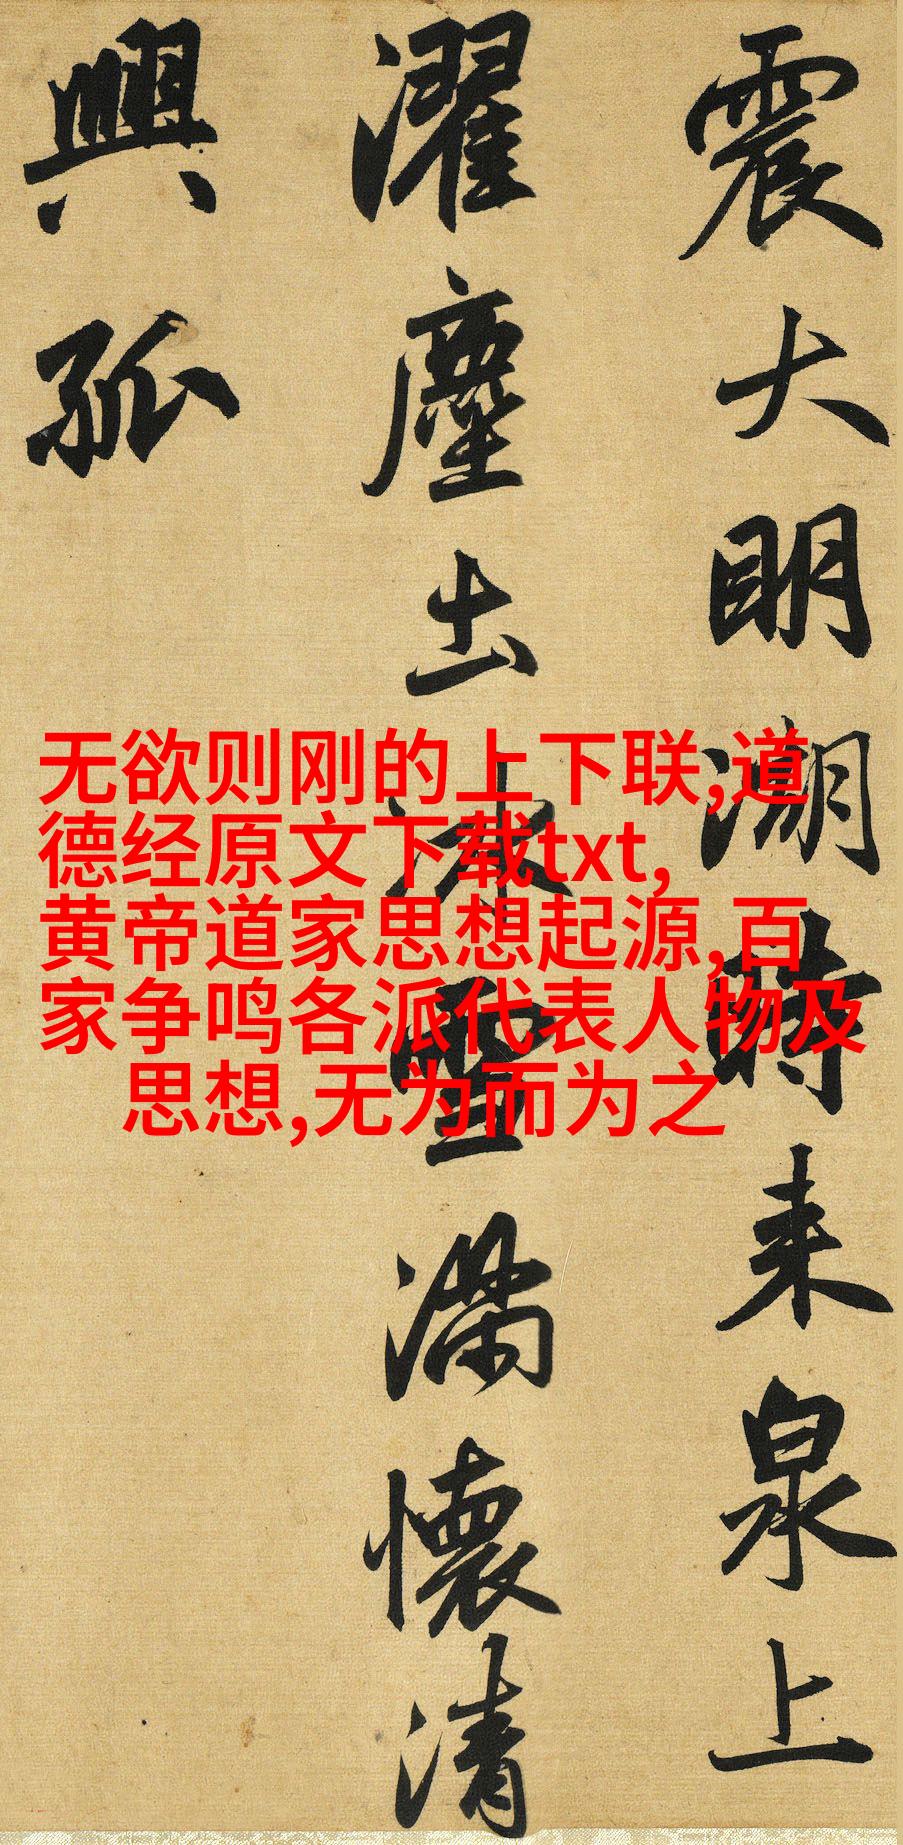 震大明湖時来泉上
濯塵土冰雪满懷清
興孤
无欲则刚的上下联,道
德经原文下载txt,
黄帝道家思想起源,百
家争鸣各派代表人物及
思想,无为而为之